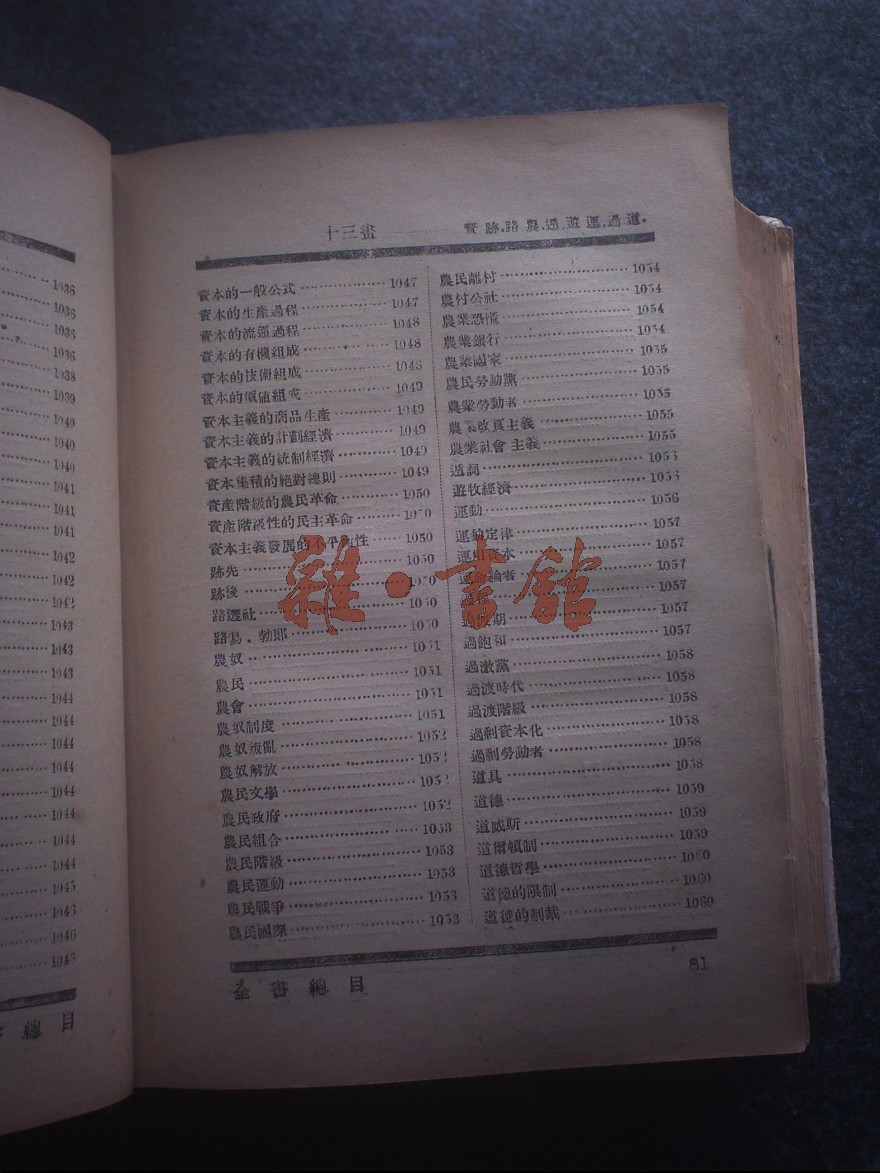 十三畫
資.跡.路.農.遁.遊.運.過.道.
資本的一般公式 1047
資本的生產過程 1047
資本的流通過程 1048
資本的有機組成 1048
資本的技術組成 1048
資本的價値組成 1049
資本主義的商品生產 1049
資本主義的計劃經濟 1049
資本主義的統制經濟 1049
資本集積的絕對總則 1049
資產階級的農民革命 1050
資產階級性的民主革命 1050
資本主義發展的不平衡性 1050
跡先 1050
跡後 1050
路透社 1050
路易.勃郎 1050
農奴 1051
農民 1051
農會 1051
農奴制度 1051
農奴叛亂 1052
農奴解放 1052
農民文學 1052
農民政府 1052
農民組合 1053
農民階級 1053
農民運動 1053
農民戰爭 1053
農民國際 1053
農民離村 1054
農村公社 1054
農業恐慌 1054
農業銀行 1054
農業國家 1055
農民勞動黨 1055
農業勞動者 1055
農業改良主義 1055
農業社會主義 1055
遁詞 1056
遊牧經濟 1056
運動 1056
運動定律 1057
運用資本 1057
論者 1057
1057
期 1057
過飽和 1057
過激黨 1058
過渡時代 1058
過渡階級 1058
過剩資本化 1058
過剩勞動者 1058
道具 1058
道德 1059
道威斯 1059
道爾頓制 1059
道德哲學 1060
道德的限制 1060
道德的制裁 1060
全書總目
81
1036
1036
1036
1036
1038
1039
1040
1040
1040
1041
1041
1041
1042
1042
1042
1043
1043
1043
1044
1044
1044
1044
1044
1044
1044
1044
1044
1045
1045
1046
1046
總目
雜·書館